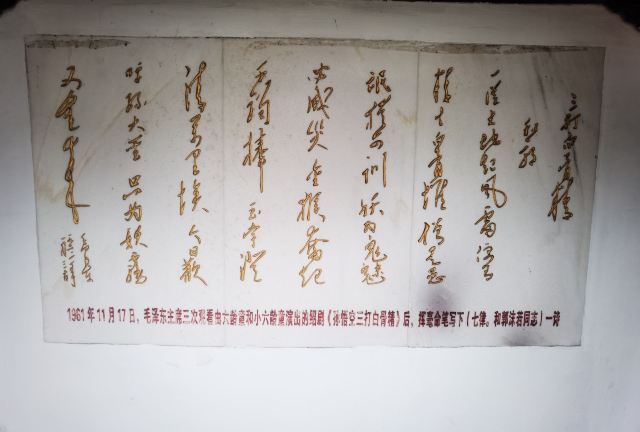 三打白骨精
一从大地起风雷便有
精生白骨堆僧是愚
氓犹可训妖为鬼蜮
必成灾金猴奋起
千钧棒玉宇澄
清万里埃今日欢
呼孙大圣只缘妖雾
又重来
毛泽东
1961年11月17日，毛泽东主席三次观看由六龄童和小六龄童演出的绍剧《孙悟空三打白骨精》后，挥毫命笔写下《七律。和郭沫若同志》一诗